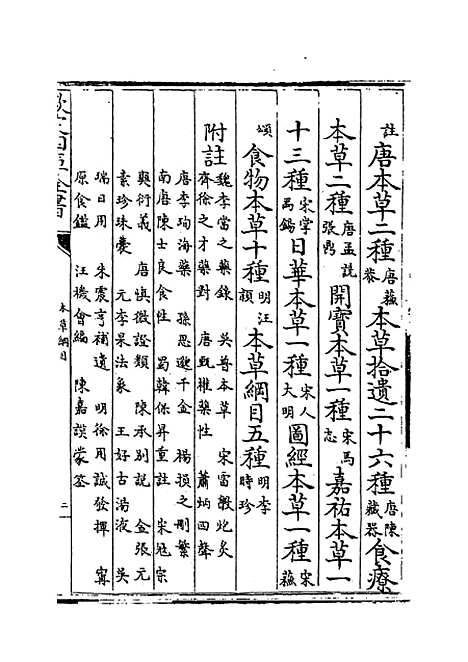 註 唐本草二種 唐蘇恭 本草拾遺二十六種 唐陳藏器 食療
本草二種 唐孟詵張鼎 開寳本草一種 宋馬志 嘉祐本草一
十三種 宋掌禹錫 日華本草一種 宋人大明 圖經本草一種 宋蘇
頌 食物本草十種 明汪頴 本草綱目五種 明李時珍
附註 魏李當之藥錄 吳普本草 宋雷斆炮炙
齊徐之才藥對 唐甄權藥性 蕭炳四聲
唐李珣海藥 孫思邈千金 楊損之刪繁
南唐陳士良食性 蜀韓保昇重註 宋寇宗
奭衍義 唐慎微證類 陳承別說 金張元
素珍珠囊 元李杲法象 王好古湯液 吳
瑞日用 朱震亨補遺 明徐用誠發揮 寗
原食鑑 汪機會編 陳嘉謨蒙筌
欽定四庫全書
本草綱目
二